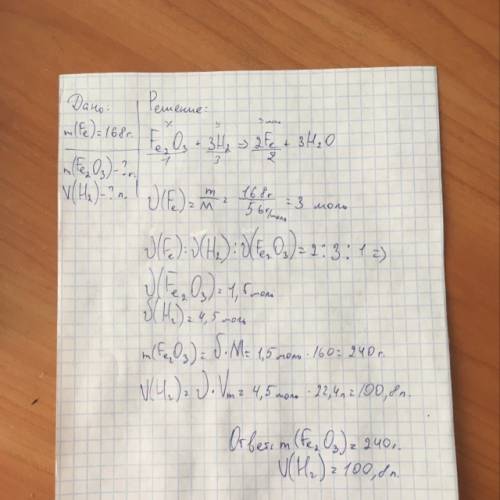 Дано:
m(Fe)=168г.
m(Fe₂O₃)-?г.
V(H₂)-?л.
Решение:
x y 3 моль
Fe₂O₃ + 3H₂ => 2Fe + 3H₂O
1 3 2
ν(Fe) = m/M = 168г/56г/моль = 3 моль
ν(Fe):ν(H₂):ν(Fe₂O₃)=2:3:1=>
ν(Fe₂O₃)=1,5 моль
ν(H₂)=4,5 моль
m(Fe₂O₃)=ν·M=1,5 моль·160=240г.
V(H₂)=ν·Vm=4,5 моль·22,4л=100,8л.
Ответ: m(Fe₂O₃)=240г.
V(H₂)=100,8л.